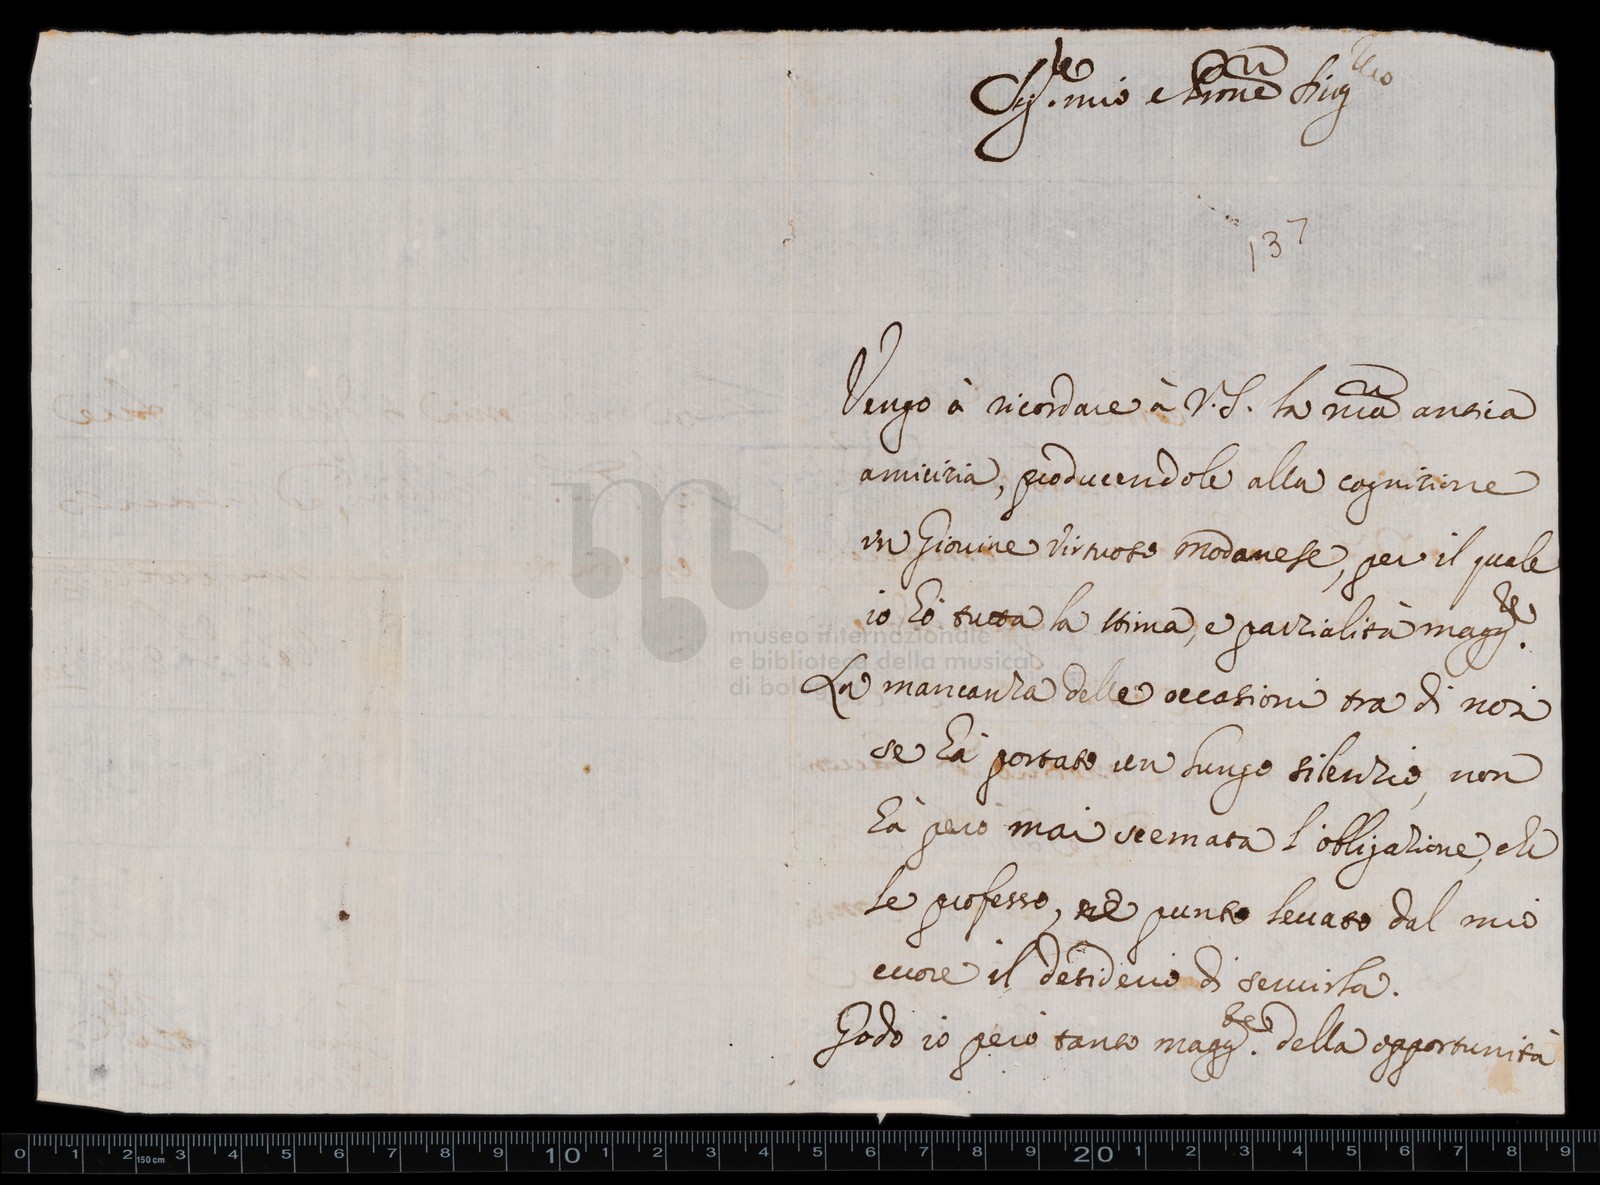 Sig.re mio e Prone Sing.mo
137
Vengo à ricordare à V.S. la nra antica
amicizia, producendole alla cognizione
un Giovine virtuoso Modanese, per il quale
io hò tutta la stima, e parzialità magg.re
La mancanza delle occasioni tra di noi
se hà portato un lungo silenzio, non
hà però mai scemata l'obbligazione, che
le professo, nè punto levato dal mio
cuore il desiderio di servirla.
Godo io però tanto magg.te della opportunità
museo internazionale
e biblioteca della musica
di bol
0 1 2 150 cm 3 4 5 6 7 8 9 10 1 2 3 4 5 6 7 8 9 20 1 2 3 4 5 6 7 8 9